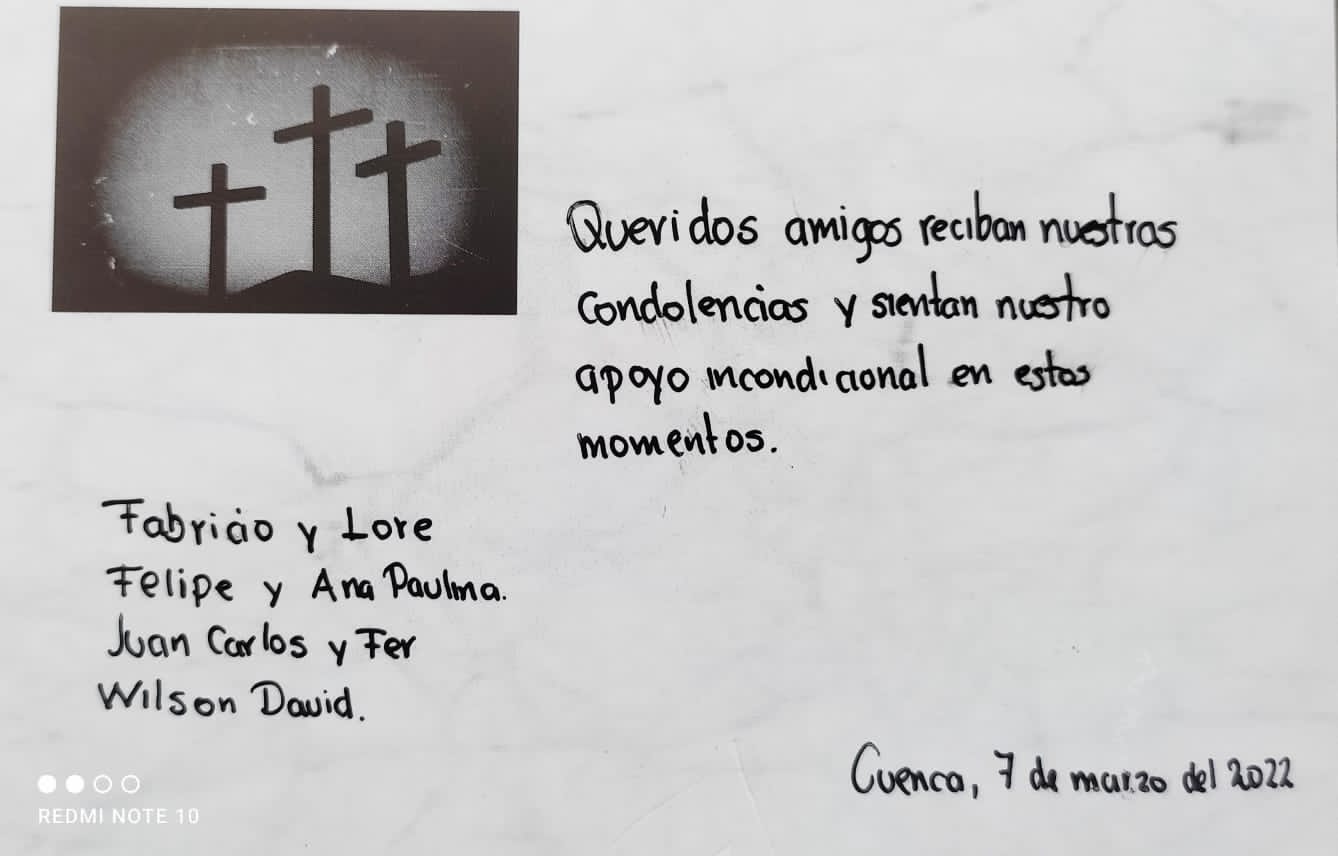 Queridos amigos reciban nuestras
condolencias y sientan nuestro
apoyo incondicional en estos
momentos.
Fabricio y Lore
Felipe y Ana Paulina.
Juan Carlos y Fer
Wilson David.
Cuenca, 7 de marzo del 2022
REDMI NOTE 10